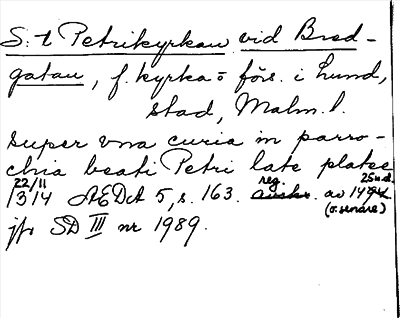 S:t Petrikyrkan vid Bred-
gatan, f. kyrka o förs. i Lund,
stad, Malm. l.
super vna curia in parro-
chia beati Petri late platee
22/11 1314 ÆDA 5, s. 163. reg. av 1494 25/12
(o. senare)
jfr SD III nr 1989.